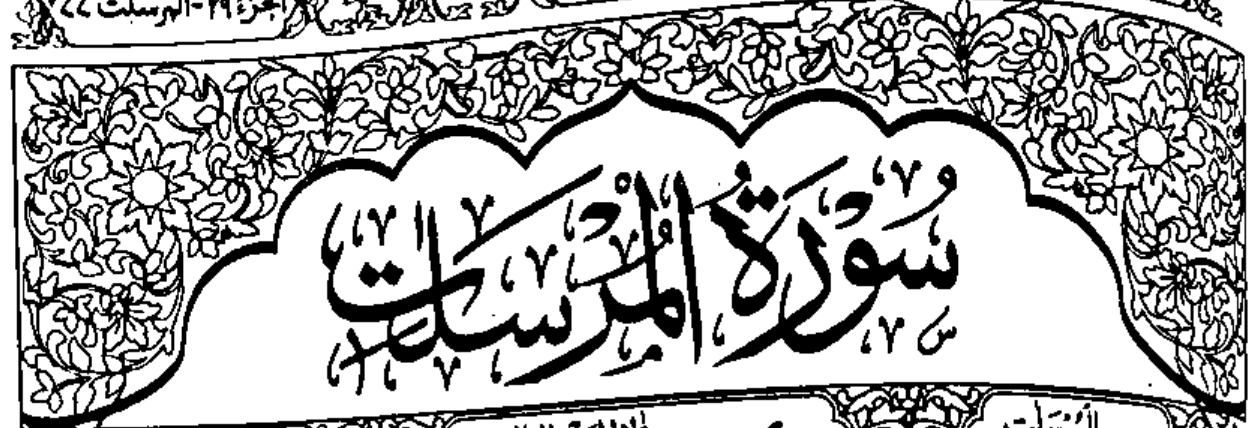 الجزء ٢٩-المرسلت ٧٧
سُوْرَةُ الْمُرْسَلَات